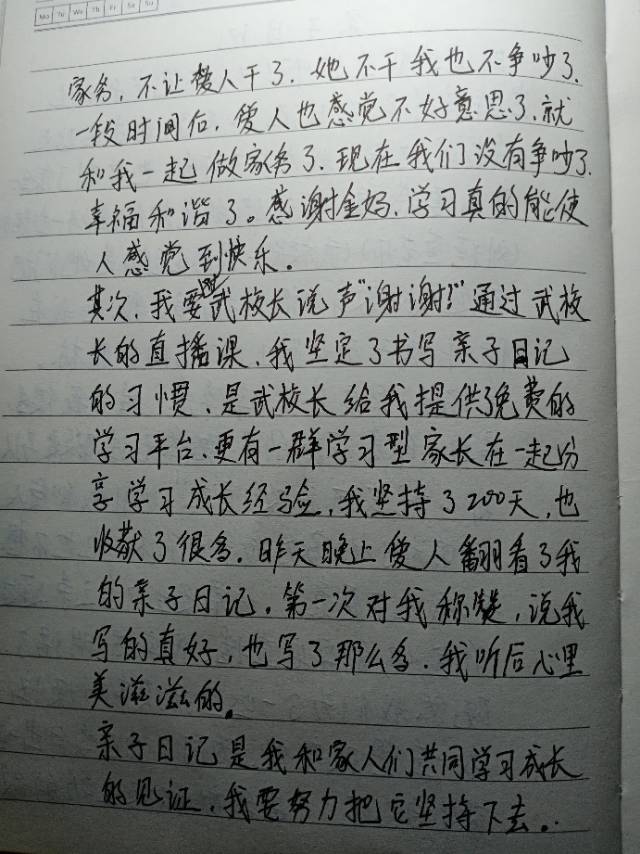 Mo Tu We Th Fr Sa Su
家务，不让爱人干了。她不干我也不争吵了。
一段时间后，爱人也感觉不好意思了，就
和我一起做家务了，现在我们没有争吵了，
幸福和谐了。感谢金妈，学习真的能使
人感觉到快乐。
其次，我要跟武校长说声“谢谢！”通过武校
长的直播课，我坚定了书写亲子日记
的习惯，是武校长给我提供了免费的
学习平台，更有一群学习型家长在一起分
享学习成长经验，我坚持了200天，也
收获了很多。昨天晚上爱人翻看了我
的亲子日记。第一次对我称赞，说我
写的真好，也写了那么多，我听后心里
美滋滋的。
亲子日记是我和家人们共同学习成长
的见证，我要努力把它坚持下去。